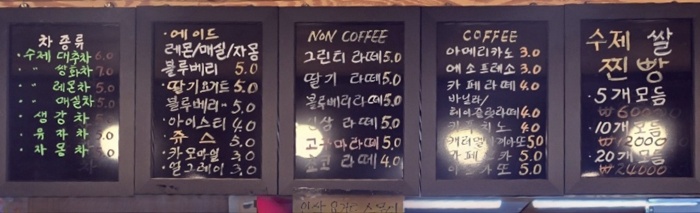 차 종류
·수제 대추차 6.0
·〃 쌍화차 7.0
〃 레몬차 5.0
〃 매실차 5.0
생강차 5.0
·유자차 5.0
·자몽차
·에이드
레몬/매실/자몽
블루베리 5.0
·딸기요거트 5.0
·블루베리· 5.0
·아이스티 4.0
·쥬스 5.0
·카모마일 3.0
·얼그레이 3.0
NON COFFEE
그린티 라떼 5.0
딸기 라떼 5.0
블루베리라떼 5.0
라떼 5.0
고구마라떼 5.0
라떼 4.0
COFFEE
아메리카노 3.0
에소프레소 3.0
카페라떼 4.0
바닐라/
헤이즐럿라떼 4.0
4.0
5.0
카페모카 5.0
5.0
수제 쌀
찐빵
·5개모듬
₩6000
·10개모듬
₩12000
·20개모듬
₩24000